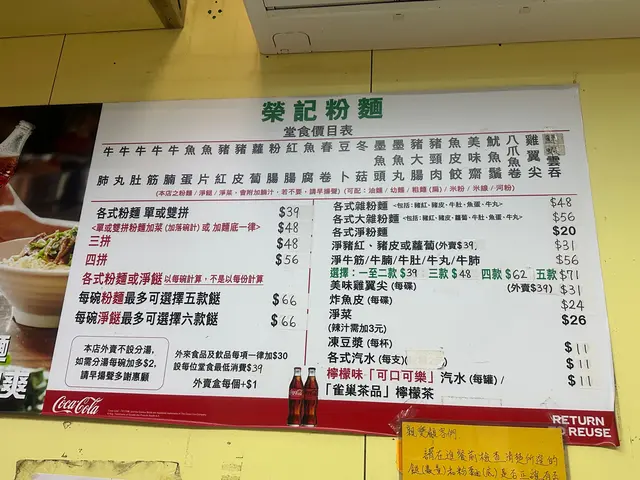 榮記粉麵
堂食價目表
牛肺
牛丸
牛肚
牛筋
牛腩
魚蛋
魚片
豬紅
豬皮
蘿蔔
粉腸
紅腸
魚腐
春卷
豆卜
冬菇
墨魚頭
墨魚丸
豬大腸
豬頸肉
魚皮餃
美味齋
魷魚鬚
八爪魚
雞翼尖
雲吞
(本店之粉麵 / 淨餸 / 淨菜,會附加腩汁,若不要,請早揚聲) (可配:油麵 / 幼麵 / 粗麵 (扁) / 米粉 / 米線 / 河粉)
各式粉麵 單或雙拼 $39
<單或雙拼粉麵加菜 (加落碗計) 或 加麵底一律> $48
三拼 $48
四拼 $56
各式粉麵或淨餸 以每碗計算,不是以每份計算
每碗粉麵最多可選擇五款餸 $66
每碗淨餸最多可選擇六款餸 $66
本店外賣不設分湯,
如需分湯每碗加多$2,
請早揚聲多謝惠顧
外來食品及飲品每項一律加$30
設每位堂食最低消費$39
外賣盒每個+$1
各式雜粉麵 <包括:豬紅、豬皮、牛肚、魚蛋、牛丸> $48
各式大雜粉麵 <包括:豬紅、豬皮、蘿蔔、牛肚、魚蛋、牛丸> $56
各式淨粉麵 $20
淨豬紅、豬皮或蘿蔔 (外賣$39) $31
淨牛筋/牛腩/牛肚/牛丸/牛肺 $56
選擇:一至二款 $39 三款 $48 四款 $62 五款 $71
美味雞翼尖 (每碟) (外賣$39) $31
炸魚皮 (每碟) $24
淨菜 $26
(辣汁需加3元)
凍豆漿 (每杯) $11
各式汽水 (每支) $11
檸檬味「可口可樂」汽水 (每罐) / $11
「雀巢茶品」檸檬茶
Coca-Cola
RETURN
REUSE
親愛顧客們